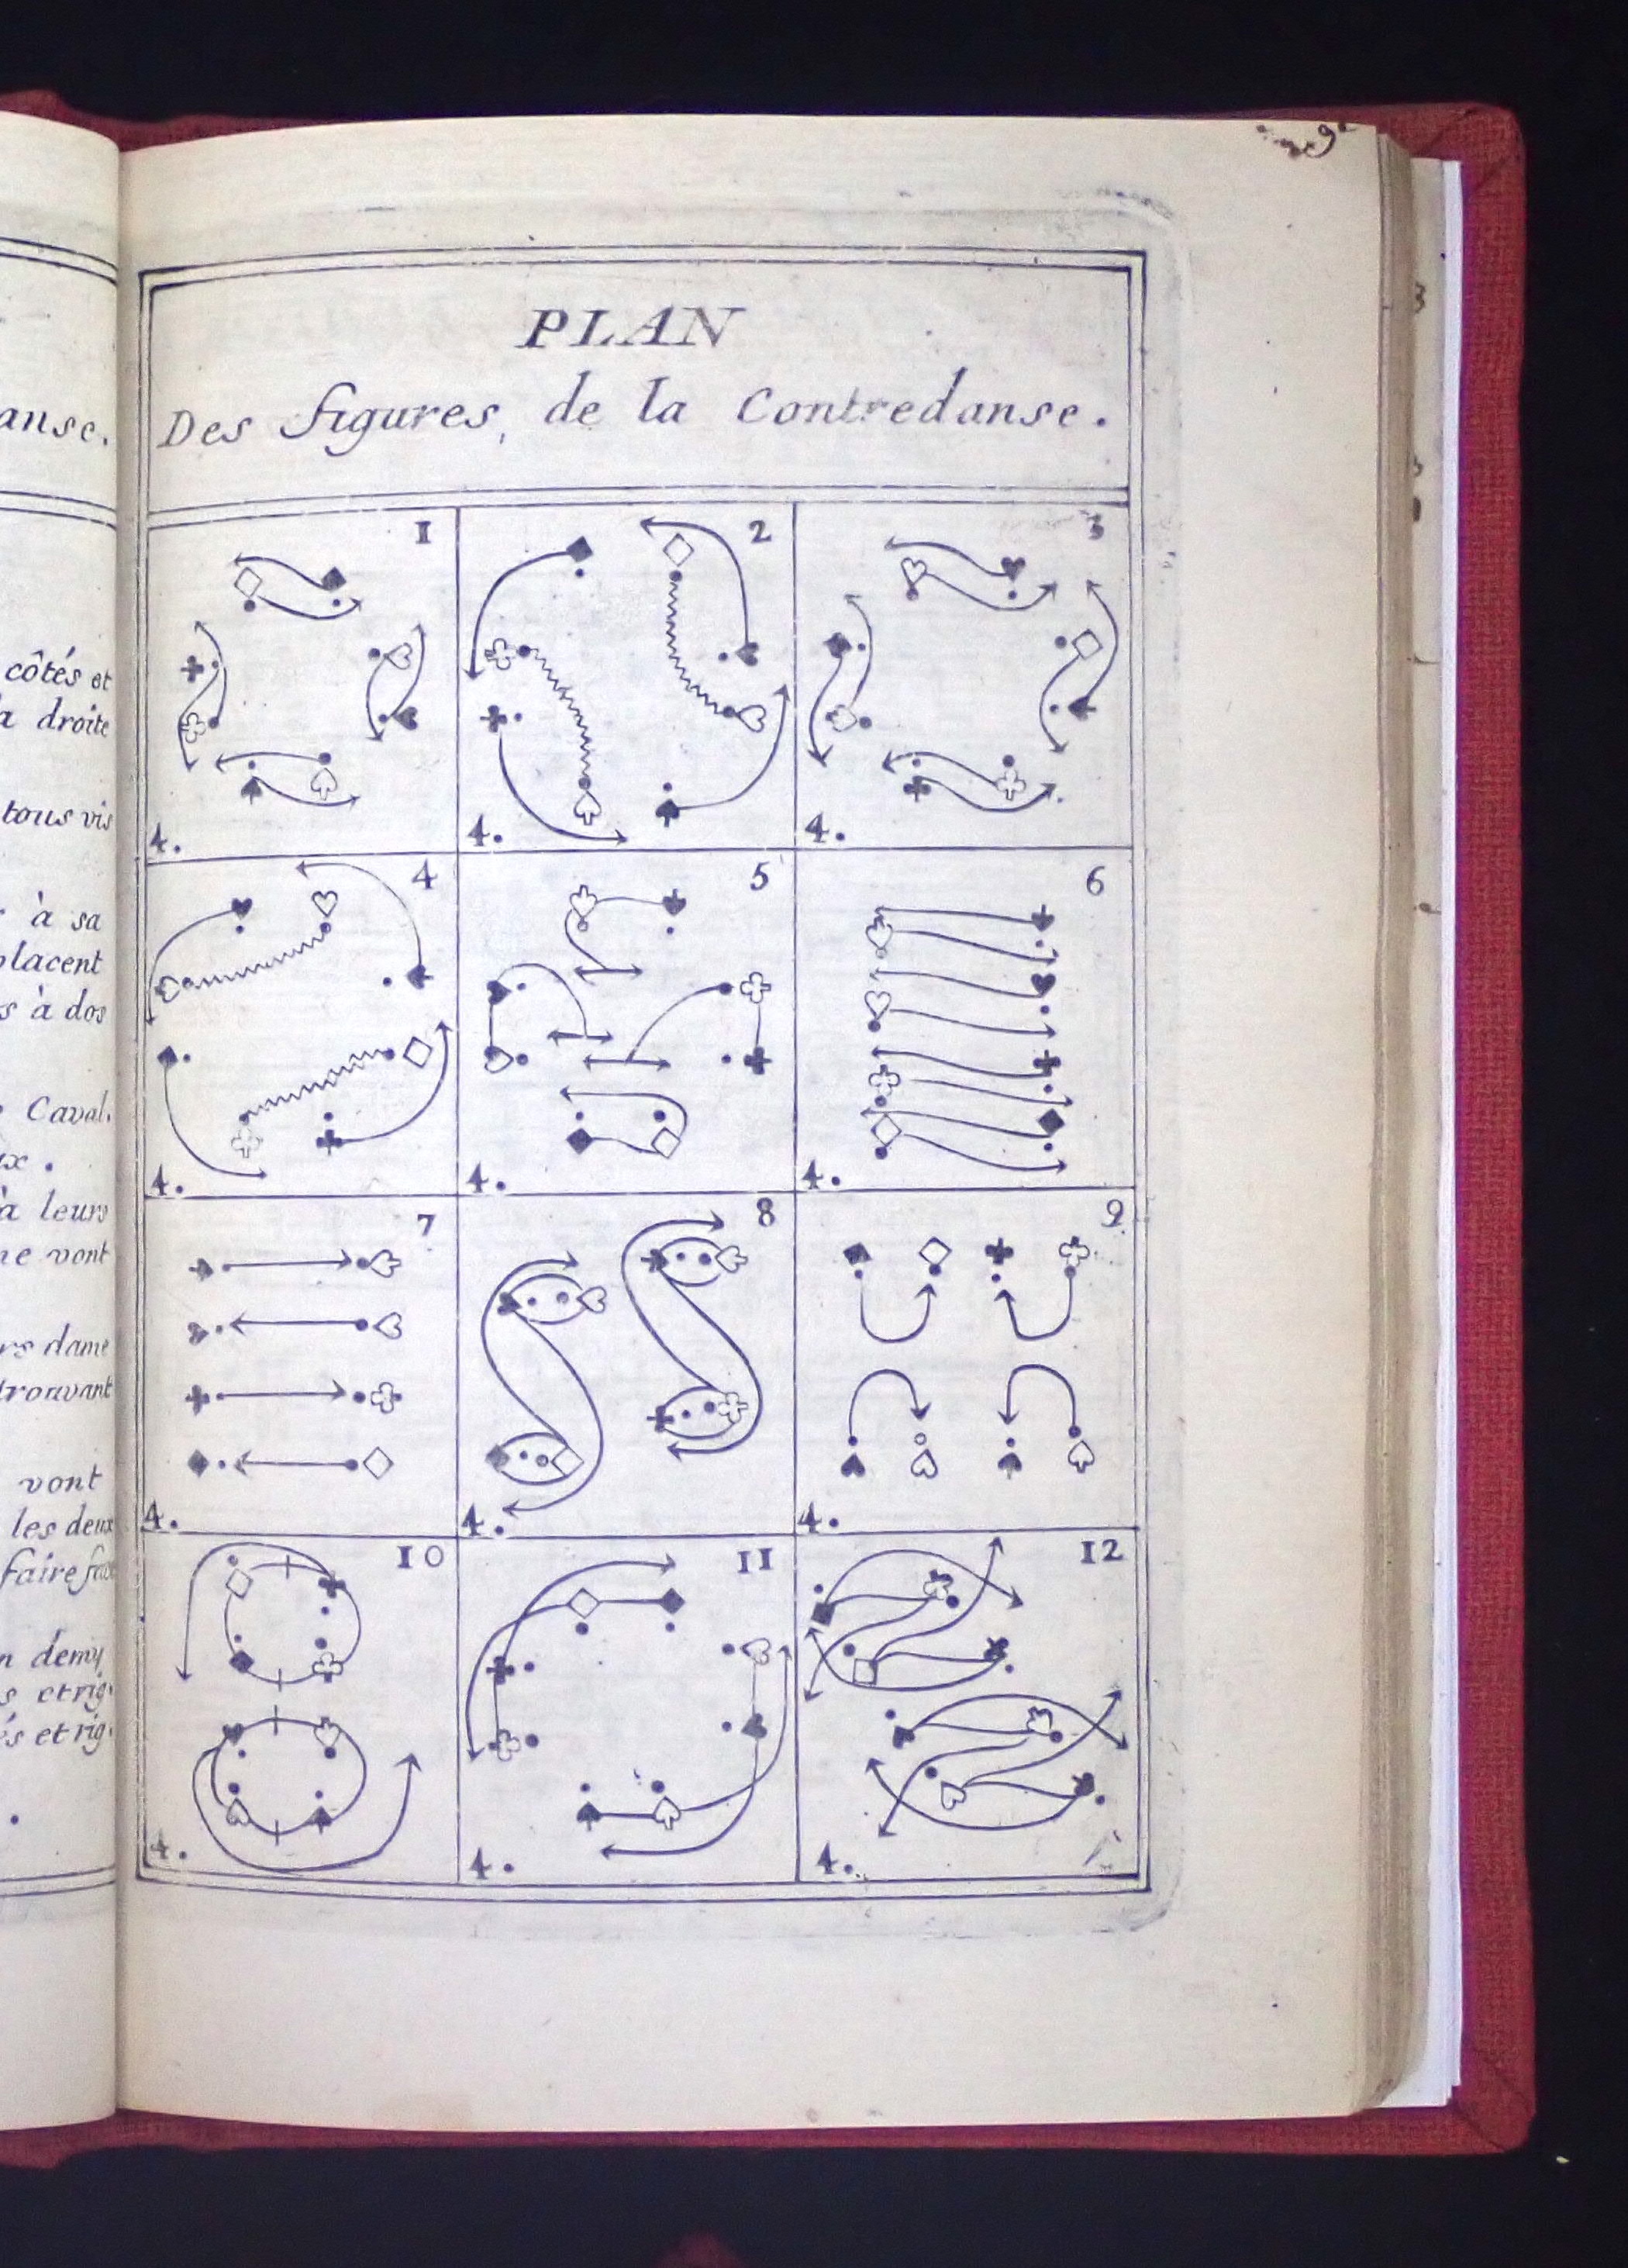 anse.
côtés et
a droite
tous vis
à sa
placent
s à dos
Caval.
ux.
à leurs
ne vont
rs dame
trouvant
vont
les deux
faire face
n demy
s et rig.
és et rig.
9
PLAN
Des figures, de la Contredanse.
1
4.
2
4.
3
4.
4
4.
5
4.
6
4.
7
4.
8
4.
9
4.
10
4.
11
4.
12
4.